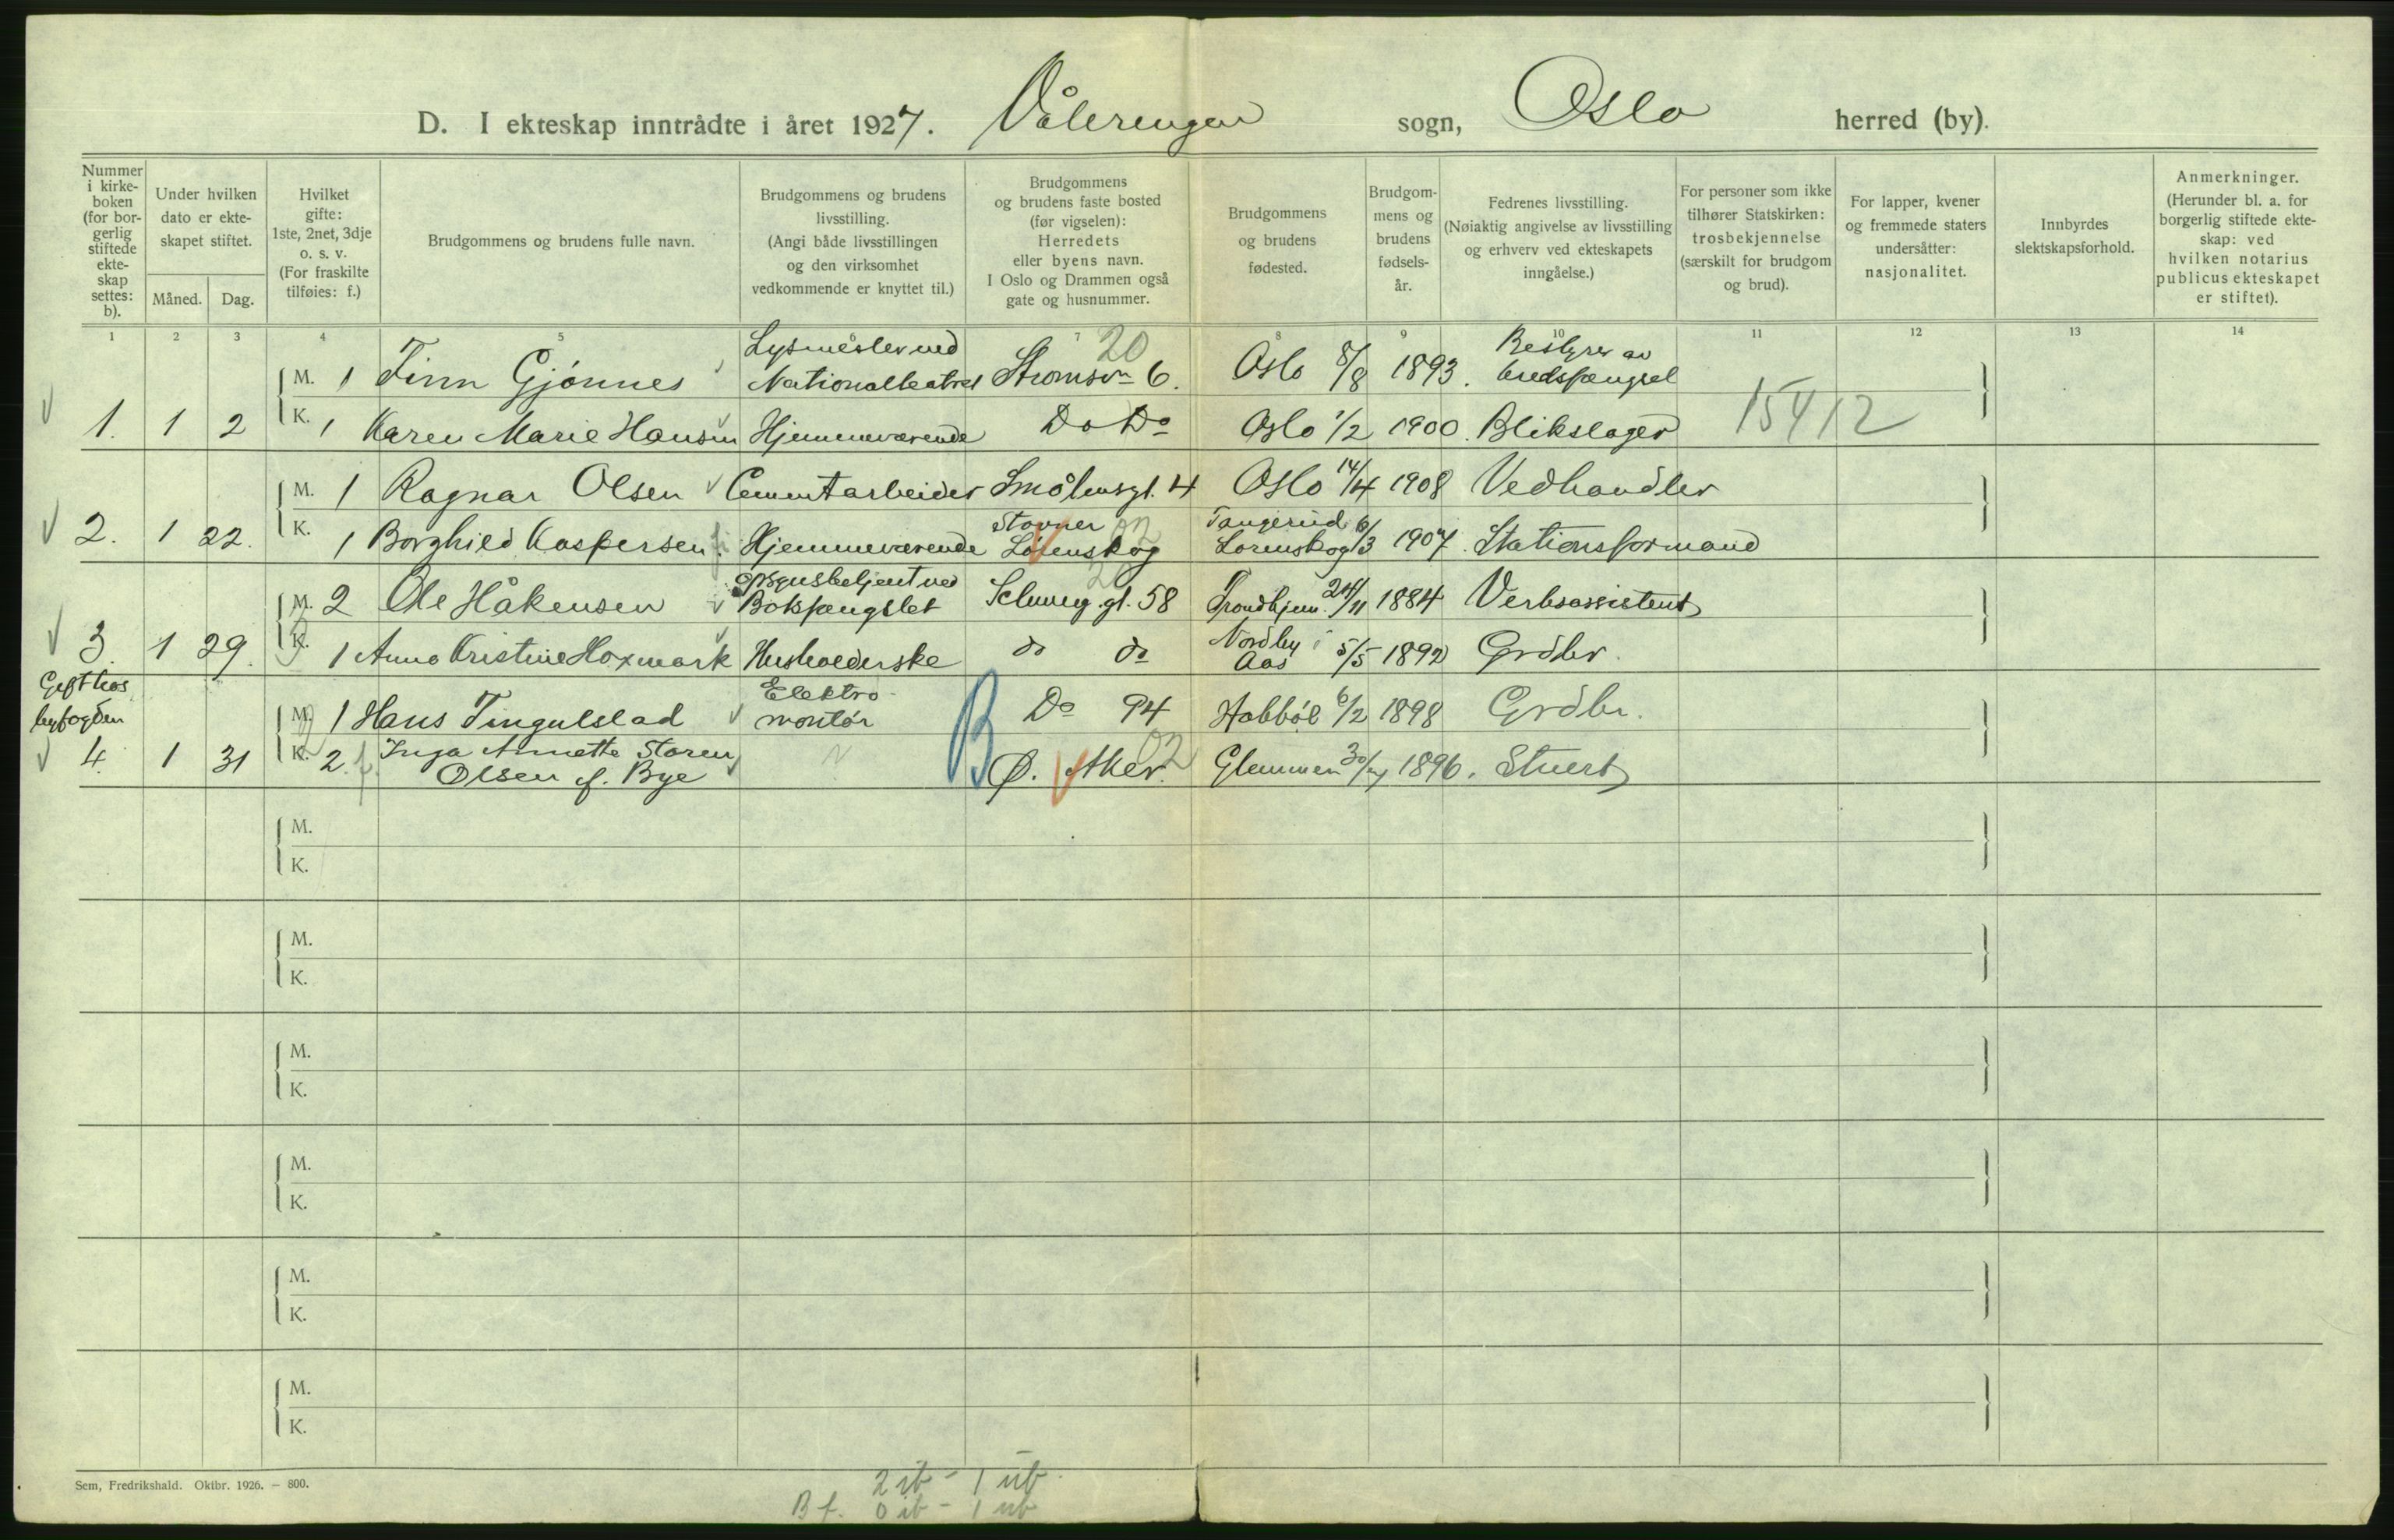 D. I ekteskap inntrådte i året 1927. Vålerengen sogn, Oslo herred (by).
Nummer i kirkeboken (for borgerlig stiftede ekteskap settes: b).
Under hvilken dato er ekteskapet stiftet.
Måned. Dag.
Hvilket gifte: 1ste, 2net, 3dje o. s. v. (For fraskilte tilføies: f.)
Brudgommens og brudens fulle navn.
Brudgommens og brudens livsstilling. (Angi både livsstillingen og den virksomhet vedkommende er knyttet til.)
Brudgommens og brudens faste bosted (før vigselen): Herredets eller byens navn. I Oslo og Drammen også gate og husnummer.
Brudgommens og brudens fødested.
Brudgommens og brudens fødselsår.
Fedrenes livsstilling. (Nøiaktig angivelse av livsstilling og erhverv ved ekteskapets inngåelse.)
For personer som ikke tilhører Statskirken: trosbekjennelse (særskilt for brudgom og brud).
For lapper, kvener og fremmede staters undersåtter: nasjonalitet.
Innbyrdes slektskapsforhold.
Anmerkninger. (Herunder bl. a. for borgerlig stiftede ekteskap: ved hvilken notarius publicus ekteskapet er stiftet).
1 2 3 4 5 6 7 8 9 10 11 12 13 14
20
M. 1 Finn Gjönnes Lysmester ved Nationalteatret Strömsvn 6. Oslo 8/8 1893. Bestyrer av
1. 1 2 K. 1 Karen Marie Hansen Hjemmeværende Do Do Oslo 1/2 1900. Blikslager 15412
M. 1 Ragnar Olsen Cementarbeider Smålensgt. 4 Oslo 14/4 1908 Vedhandler
2. 1 22. K. 1 Borghild Kaspersen Hjemmeværende Stovner Lörenskog 02 Tangerud Lorenskog 6/3 1907. Stationsformand
M. 2 Ole Håkensen Opsynsbetjent ved Botsfengslet 20 Schweig.gt. 58 Trondhjem 24/11 1884 Verksassistent
3. 1 29. K. 1 Anna Kristine Hoxmark Husholderske do do Nordby i Aas 5/5 1892 Grdbr.
Gift hos byfogden
M. 1 Hans Tingulstad Elektromontör B Do 94 Hobböl 6/2 1898 Grdbr.
4. 1 31 K. 2. f. Inga Annette Storen Olsen f. Bye Ø. Aker. 02 Glemmen 30/ 1896. Stuert
M.
K.
M.
K.
M.
K.
M.
K.
M.
K.
M.
K.
Sem, Fredrikshald. Oktbr. 1926. — 800.
2 ib - 1 ub
B f. 0 ib - 1 ub